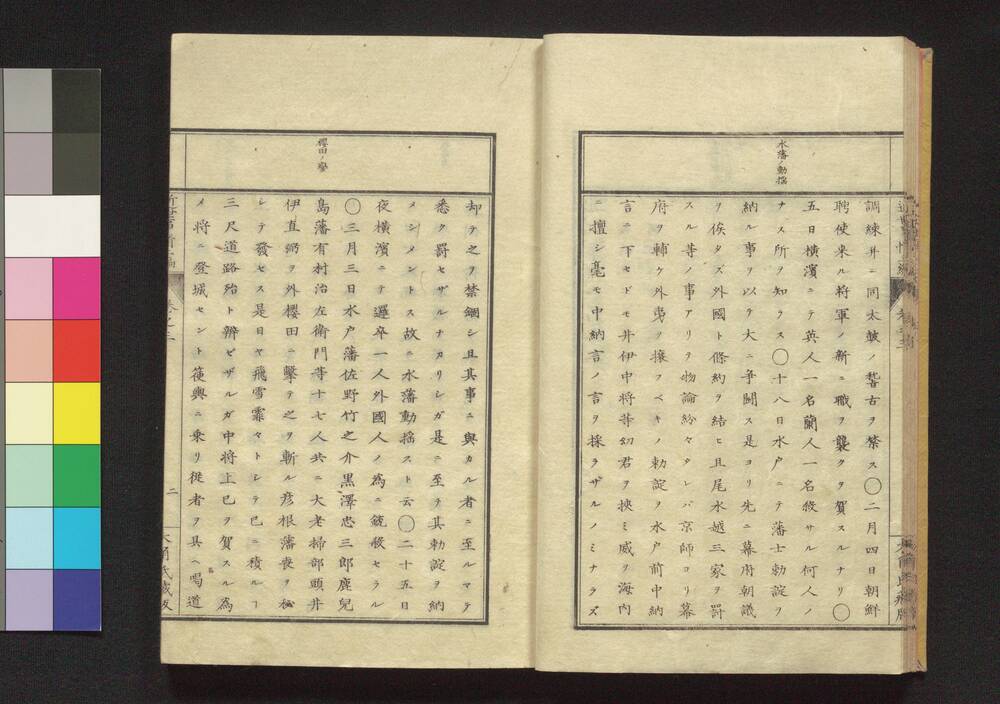 水藩ノ動揺
調練并ニ同太皷ノ稽古ヲ禁ス〇二月四日朝鮮
聘使来ル将軍ノ新ニ職ヲ襲クヲ賀スルナリ〇
五日横濱ニテ英人一名蘭人一名殺サル何人ノ
ナス所ヲ知ラス〇十八日水戸ニテ藩士勅諚ヲ
納ル事ヲ以テ大ニ争鬪ス是ヨリ先ニ幕府朝議
ヲ俟タズ外國ト條約ヲ結ヒ且尾水越三家ヲ罸
スル等ノ事アリ物論紛々タレバ京師ヨリ幕
府ヲ輔ケ外夷ヲ攘フベキノ勅諚ヲ水戸前中納
言ニ下セドモ井伊中将等幼君ヲ挾ミ威ヲ海内
ニ擅シ毫モ中納言ノ言ヲ採ラザルノミナラズ
櫻田ノ變
却テ之ヲ禁錮シ且其事ニ與カル者ニ至ルマテ
悉ク罸セザルナカリシガ是ニ至テ其勅諚ヲ納
メシメントス故ニ水藩動揺スト云〇二十五日
夜横濱ニテ邏卒一人外國人ノ為ニ銃殺セラル
〇三月三日水戸藩佐野竹之介黒澤忠三郎鹿兒
島藩有村治左衛門等十七人共ニ大老掃部頭井
伊直弼ヲ外櫻田ニ撃テ之ヲ斬ル彦根藩喪ヲ秘
シテ發セス是日ヤ飛雪霏々トシテ已ニ積ルヿ
三尺道路殆ト辨ゼザルガ中将上巳ヲ賀スル為
メ将ニ登城セント篗輿ニ乗リ従者ヲ具ヘ喝道
卷之三
二